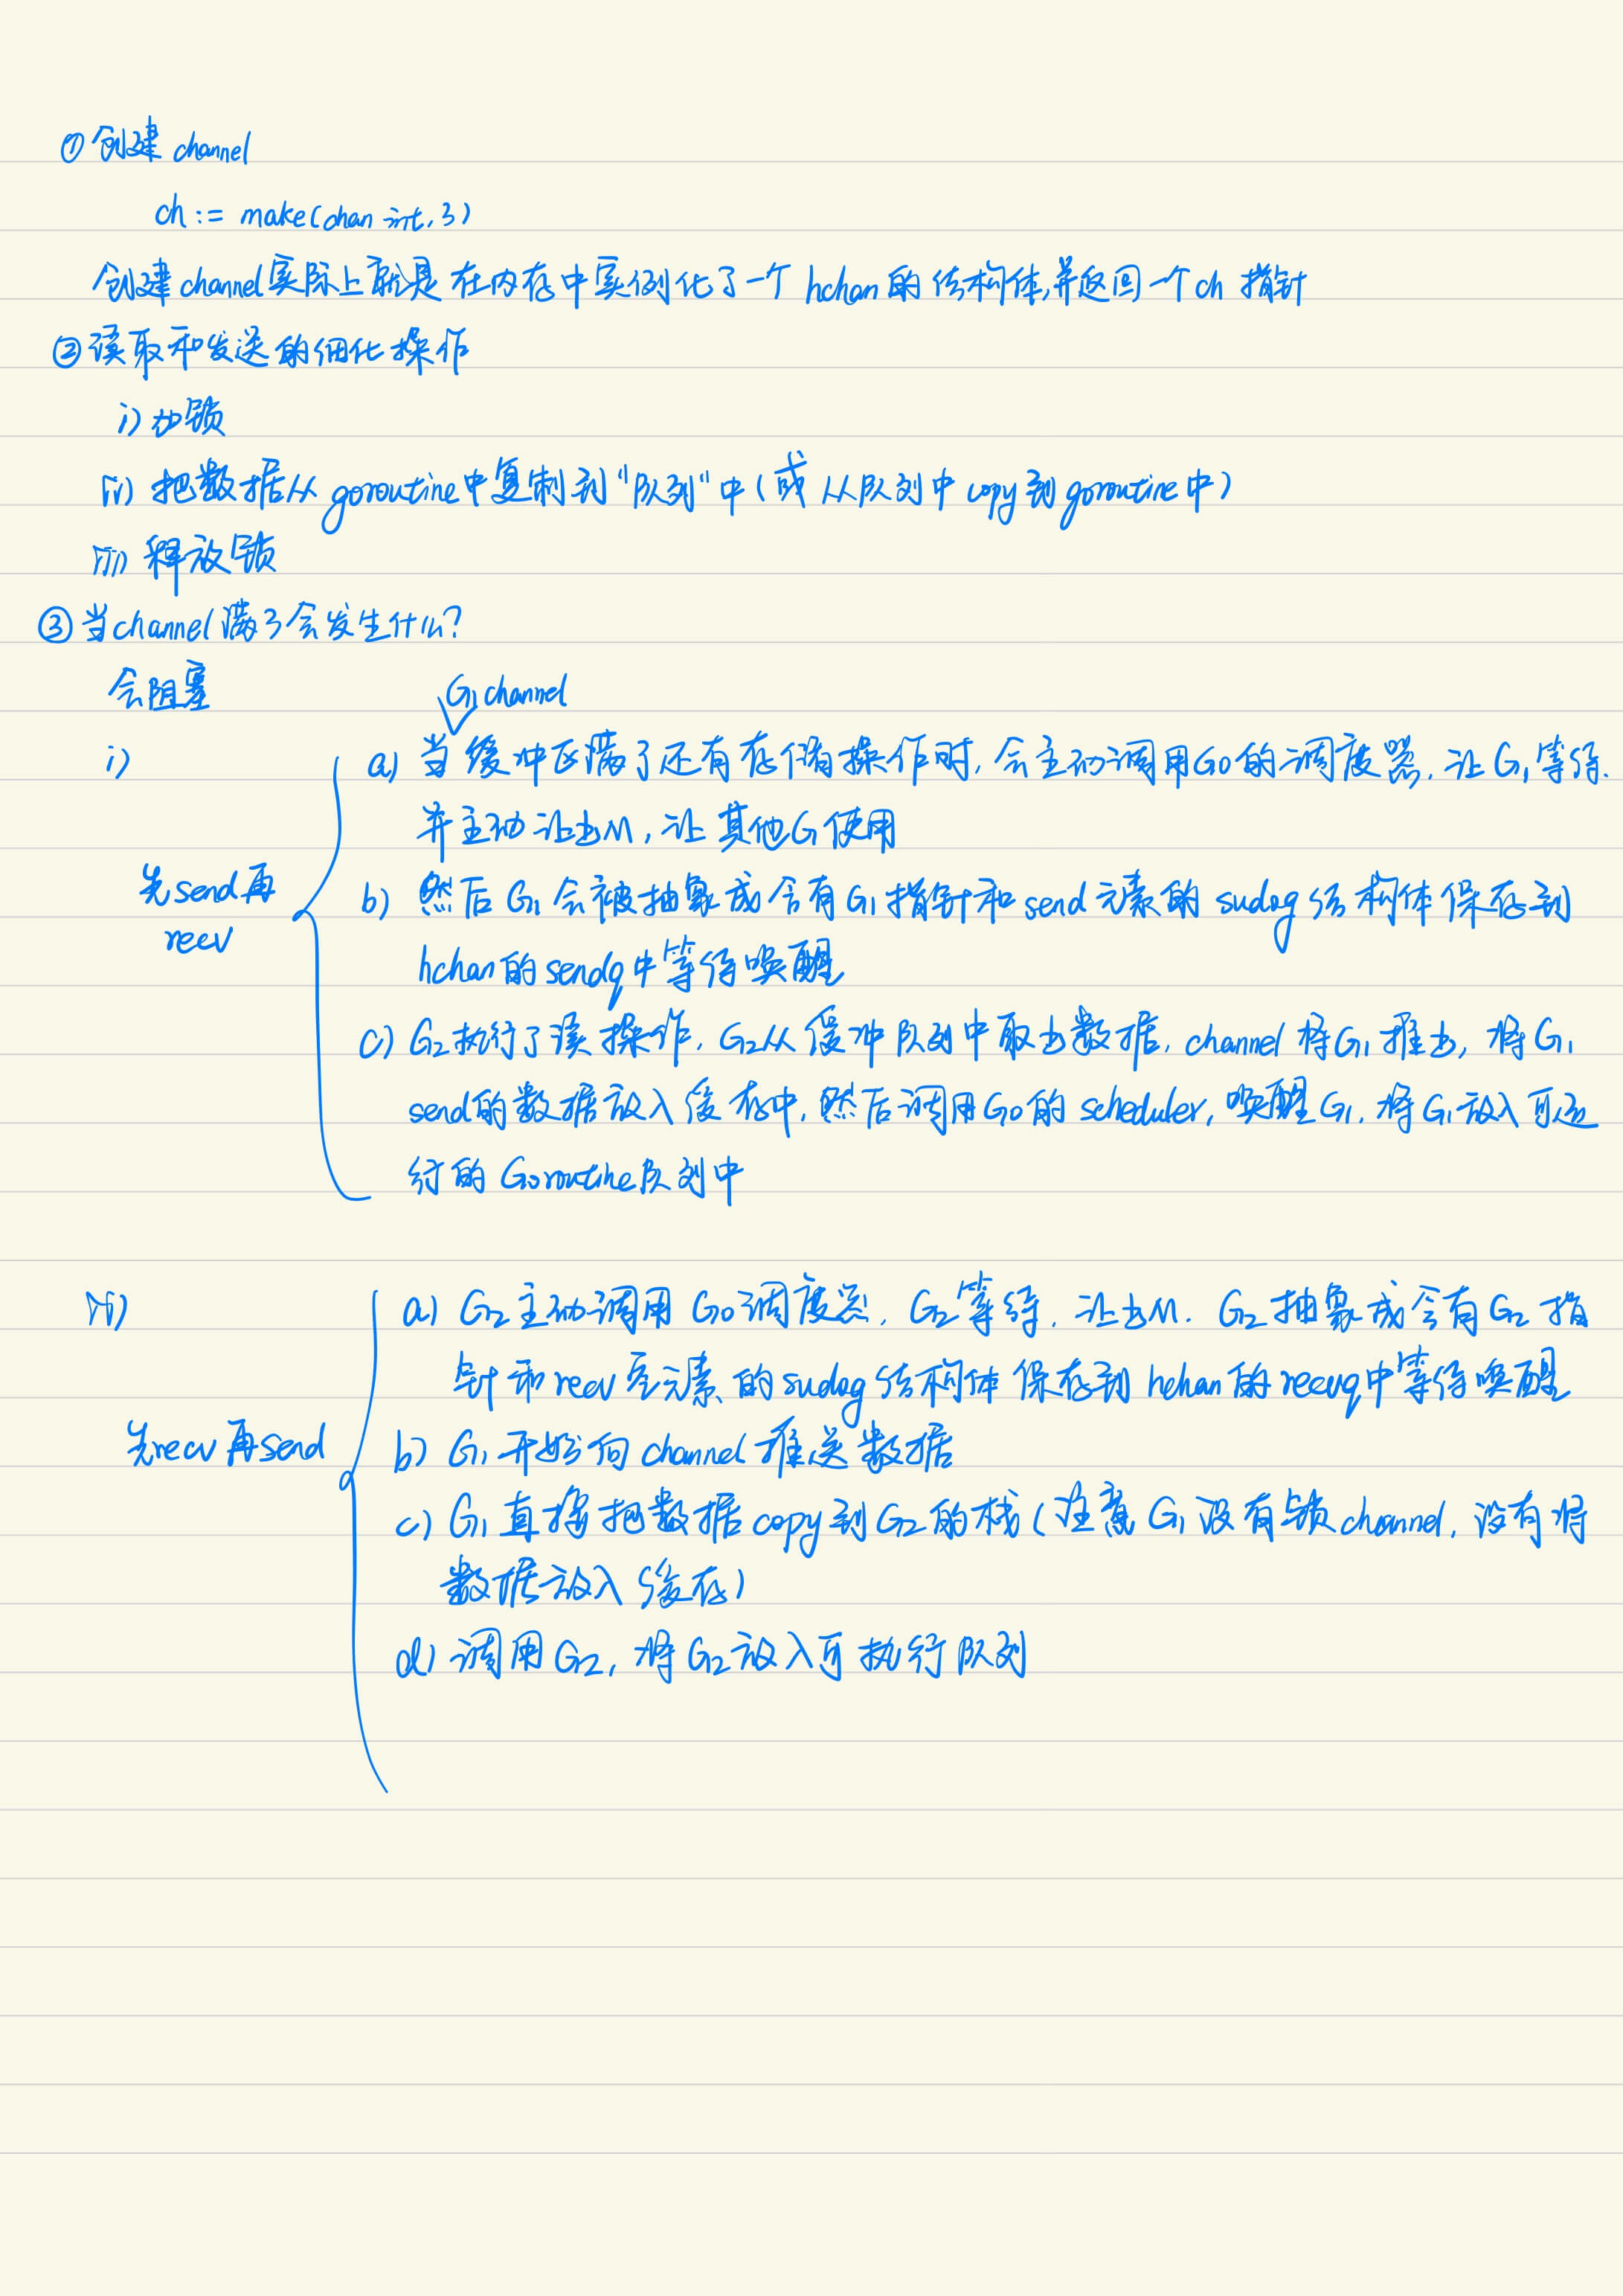 ① 创建 channel
ch := make(chan int, 3)
创建 channel 实际上就是在内存中实例化了一个 hchan 的结构体,并返回一个 ch 指针
② 读取和发送的细化操作
i) 加锁
ii) 把数据从 goroutine 中复制到"队列"中(或从队列中 copy 到 goroutine 中)
iii) 释放锁
③ 当 channel 满了会发生什么?
会阻塞
G1 channel
i)
a) 当缓冲区满了还有存储操作时, 会主动调用 Go 的调度器, 让 G1 等待.
并主动让出 M, 让其他 G 使用
先 send 再
recv
b) 然后 G1 会被抽象成含有 G1 指针和 send 元素的 sudog 结构体保存到
hchan 的 sendq 中等待唤醒
c) G2 执行了读操作, G2 从缓冲队列中取出数据, channel 将 G1 推出, 将 G1
send 的数据放入缓存中, 然后调用 Go 的 scheduler, 唤醒 G1, 将 G1 放入可运
行的 Goroutine 队列中
ii)
a) G2 主动调用 Go 调度器, G2 等待, 让出 M. G2 抽象成含有 G2 指
针和 recv 空元素的 sudog 结构体 保存到 hchan 的 recvq 中等待唤醒
先 recv 再 send
b) G1 开始向 channel 推送数据
c) G1 直接把数据 copy 到 G2 的栈 (注意 G1 没有锁 channel, 没有将
数据放入缓存)
d) 调用 G2, 将 G2 放入可执行队列